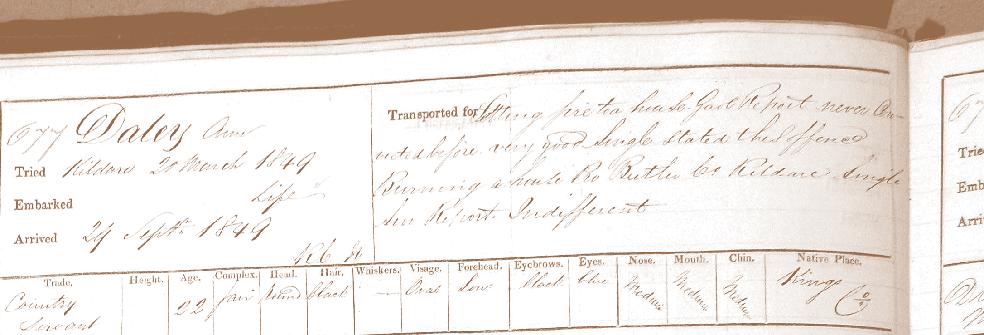 677 Daley Ann
Tried Kildare 20 March 1849
Life
Embarked
Arrived 29 Septr 1849
Transported for Setting fire to a house. Gaol Report never Con-
victed before. very good Single. Stated this Offence
Burning a house Bo Butler Co Kildare. Single
Sur Report Indifferent
Trade. Height. Age. Complex. Head. Hair. Whiskers. Visage. Forehead. Eyebrows. Eyes. Nose. Mouth. Chin. Native Place.
Country Servant 22 fair Round Black Oval Low black blue Medium Medium Medium Kings Co
67
Tried
Emb
Arri